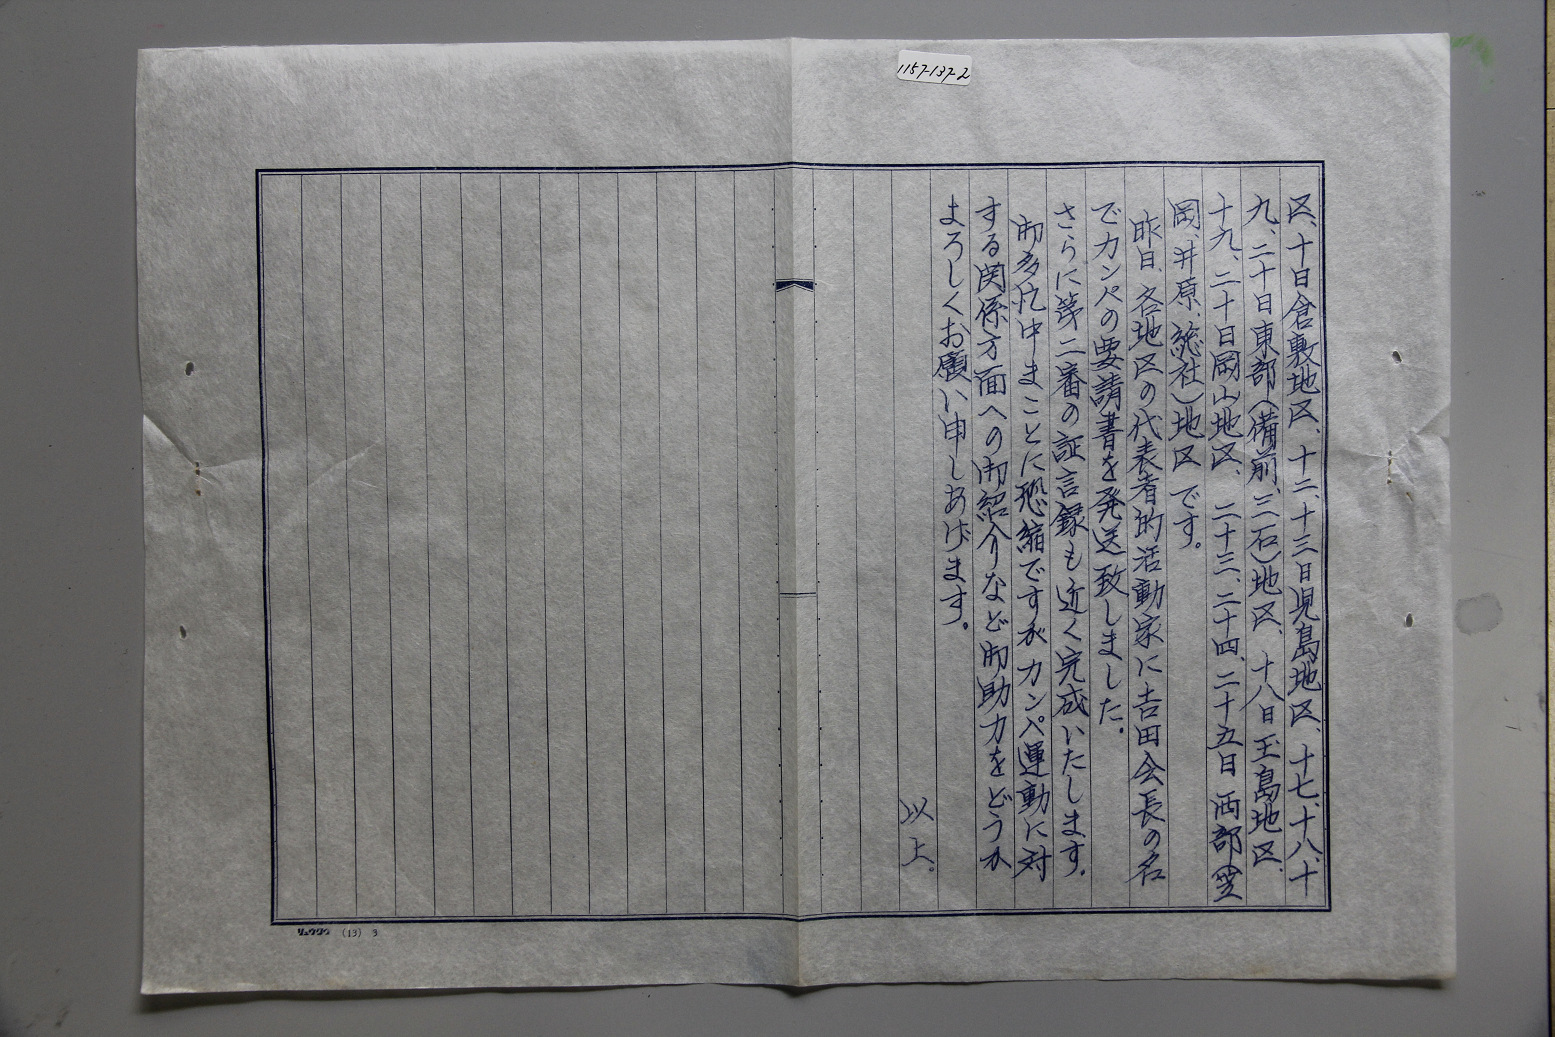 1157-137-2
区、十日倉敷地区、十二、十三日児島地区、十七、十八、十
九、二十日東部（備前、三石）地区、十八日玉島地区、
十九、二十日岡山地区、二十三、二十四、二十五日西部（笠
岡、井原、総社）地区です。
昨日、各地区の代表者的活動家に吉田会長の名
でカンパの要請書を発送致しました。
さらに第二審の証言録も近く完成いたします。
御多忙中まことに恐縮ですがカンパ運動に対
する関係方面への御紹介など御助力をどうか
よろしくお願い申しあげます。
以上。
リュウグウ (13) 3